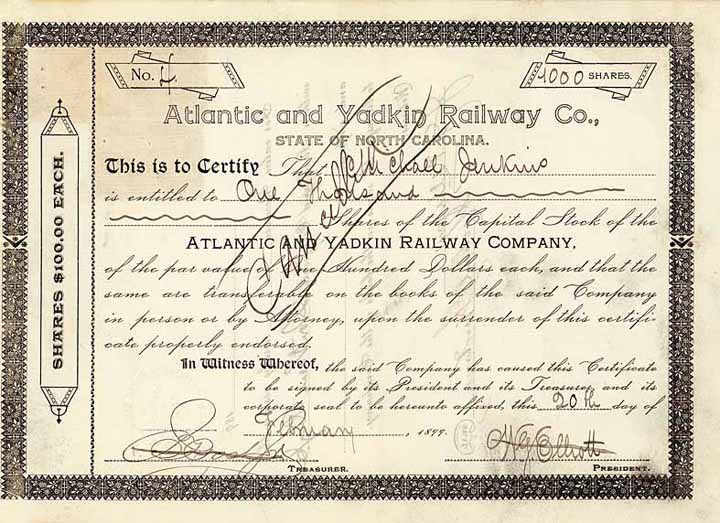 No. 4
1000 SHARES.
Atlantic and Yadkin Railway Co.,
STATE OF NORTH CAROLINA.
This is to Certify That Michael Jenkins
is entitled to One Thousand
Shares of the Capital Stock of the
ATLANTIC AND YADKIN RAILWAY COMPANY,
of the par value of One Hundred Dollars each, and that the
same are transferable on the books of the said Company
in person or by Attorney, upon the surrender of this certifi-
cate properly endorsed.
In Witness Whereof, the said Company has caused this Certificate
to be signed by its President and its Treasurer, and its
corporate seal to be hereunto affixed, this 20th day of
February, 1899.
H.G. Elliott
TREASURER.
PRESIDENT.
SHARES $100.00 EACH.
Cancelled